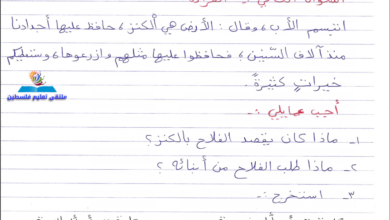 ابتسم الأب، وقال: الأرض هي ألكنز، حافظ عليها أجدادنا
منذ آلاف السّنين، فحافظوا عليها مثلهم وازرعوها، وستعطيكم
خيراتٍ كثيرةً.
ملتقى تعليم فلسطين
أجب عمايلي :-
١- ماذا كان يقصد الفلاح بالكنز؟
٢- ماذا طلب الفلاح من أبنائه؟
٣- استخرج :-